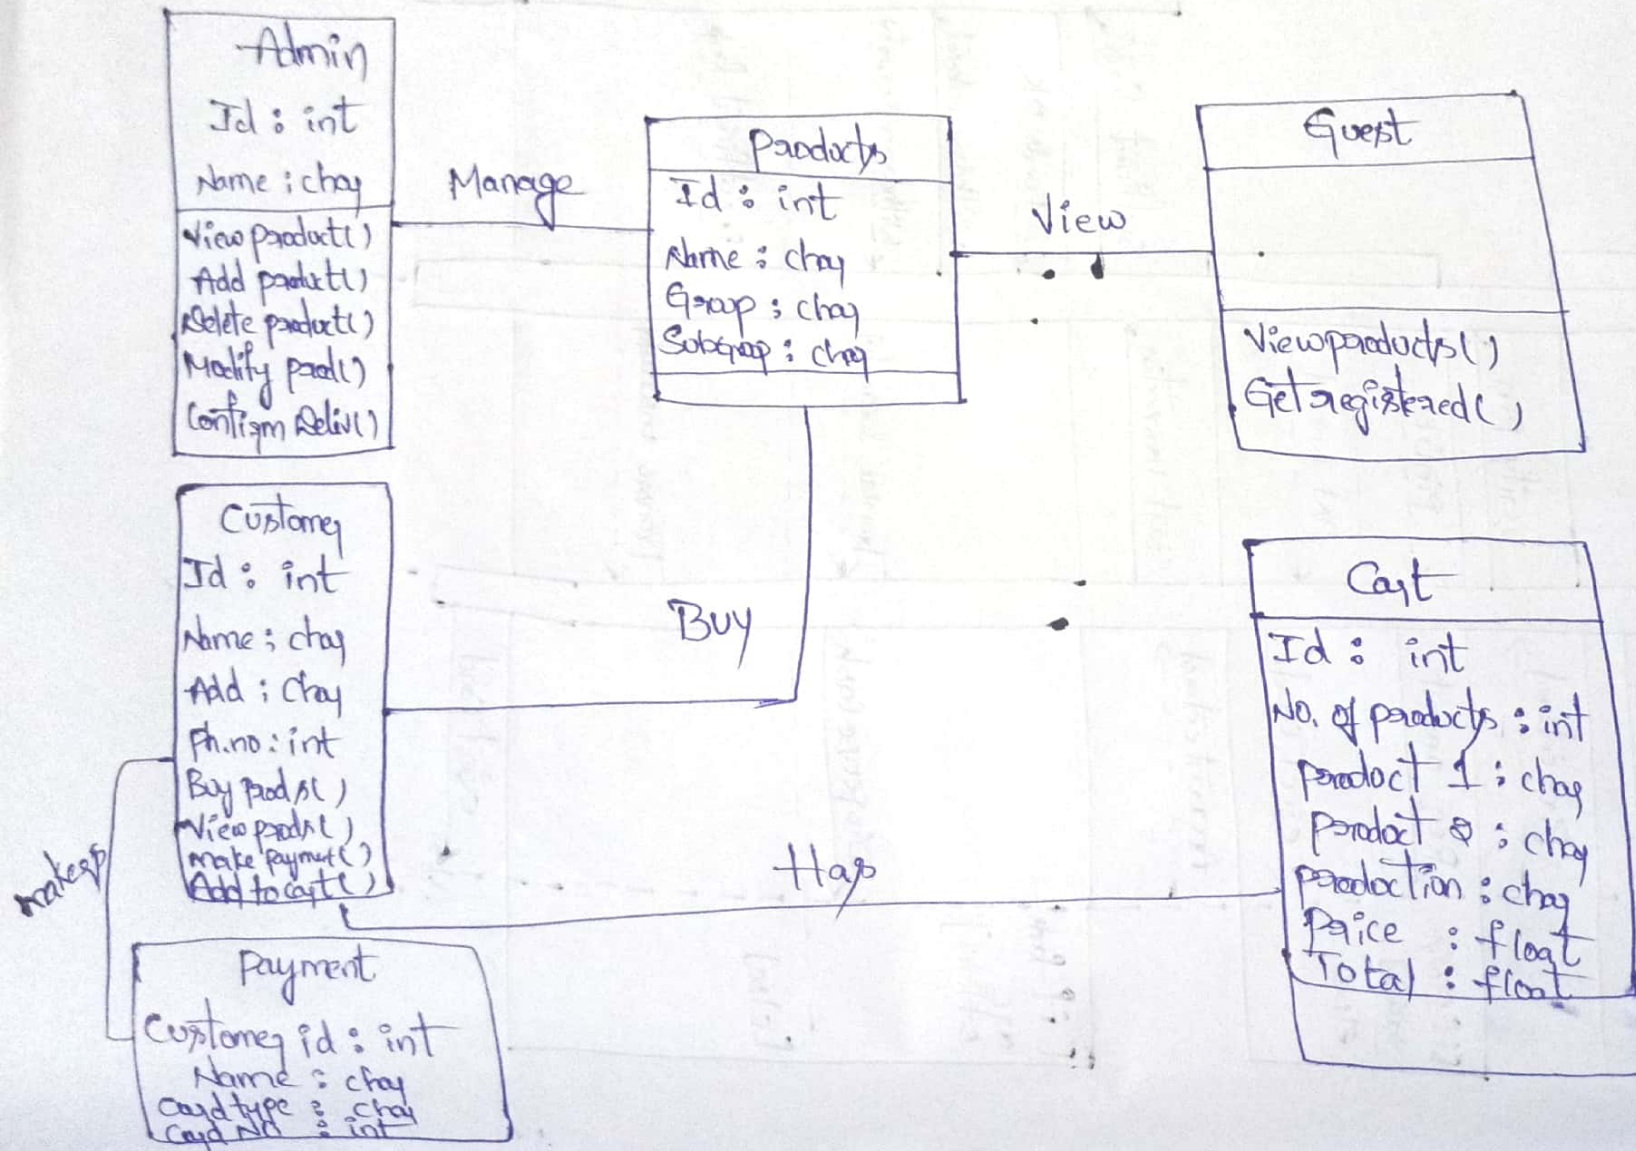 Admin
Id : int
Name : char
View product()
Add product()
Delete product()
Modify prod()
Confirm Deliv()
Manage
Products
Id : int
Name : char
Group : char
Subgroup : char
View
Guest
View products()
Get registered()
Customer
Id : int
Name : char
Add : Char
Ph.no : int
Buy prods()
View prods()
make paymet()
Add to cart()
Buy
Has
makes
Cart
Id : int
No. of products : int
product 1 : char
product 2 : char
production : char
Price : float
Total : float
Payment
Customer id : int
Name : char
Card type : char
Card No : int